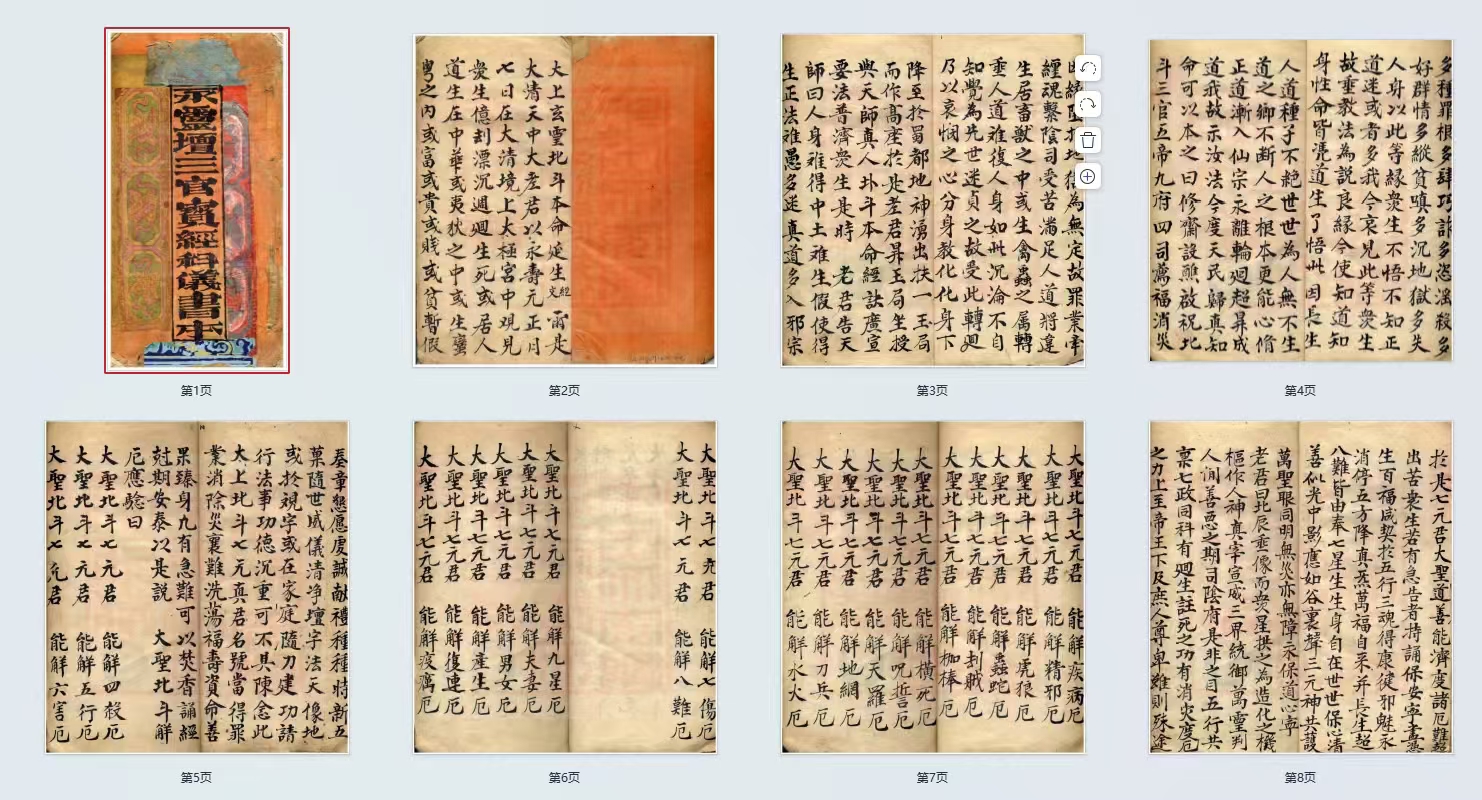 靈壇三官寶經科儀書本
第1页
大上玄雲北斗本命延生經文爾是
大清天中大老君以永壽元正月
七日在大清境上大極宮中覌見
衆生億刦漂沉週廻生死或居人
道生在中華或夷狄之中或生蠻
之內或富或貴或賎或貧暫假
第2页
為無定故罪業牽
纏魂繫陰司受苦滿足人道將違
生居畜獸之中或生禽蟲之属轉
人道难復人身如此沉淪不自
知覺為先世迷真之故受此轉廻
乃以哀憫之心分身教化化身下
降至於蜀都地神湧出扶一玉局
而作高座於是老君昇玉局坐授
與天師真人北斗本命經訣廣宣
要法普濟衆生是時 老君告天
師曰人身难得中土难生假使得
生正法难愚多迷真道多入邪宗
第3页
多種罪根多肆巧詐多恣滛殺多
好群情多縱貧嗔多沉地獄多失
人身以此等緣衆生不悟不知正
道迷或者多我今哀見此等衆生
故垂教法為説良緣令使知道知
身性命皆凴道生了悟此因長生
人道種子不絶世世為人無不生
道之卿不断人之根本更能心脩
正道漸入仙宗永離輪廻超昇成
道我故示汝法令度天民歸真知
命可以本之日修齋設醮啟祝北
斗三官五帝九府四司薦福消災
第4页
奏章懇應虔誠献禮種種時新五
菓隨世威儀清净壇宇法天像地
或扵視字或在家庭隨力建功請
行法事功德沉重可不具陳念此
大上北斗七元真君名號當得罪
業消除災衰難洗蕩福壽資命善
果臻身凢有急難可以焚香誦經
尅期安泰以是説 大聖北斗解
厄應驗曰
大聖北斗七元君 能解四殺厄
大聖北斗七元君 能解五行厄
大聖北斗七元君 能解六害厄
第5页
大聖北斗七元君 能解七傷厄
大聖北斗七元君 能解八難厄
大聖北斗七元君 能解九星厄
大聖北斗七元君 能解夫妻厄
大聖北斗七元君 能解男女厄
大聖北斗七元君 能解産生厄
大聖北斗七元君 能解復連厄
大聖北斗七元君 能解疫癘厄
第6页
大聖北斗七元君 能解疾病厄
大聖北斗七元君 能解精邪厄
大聖北斗七元君 能解虎狼厄
大聖北斗七元君 能解蟲蛇厄
大聖北斗七元君 能解刦賊厄
大聖北斗七元君 能解枷棒厄
大聖北斗七元君 能解橫死厄
大聖北斗七元君 能解呪誓厄
大聖北斗七元君 能解天羅厄
大聖北斗七元君 能解地網厄
大聖北斗七元君 能解刀兵厄
大聖北斗七元君 能解水火厄
第7页
扵是七元君大聖道善能濟度諸厄難超
出苦衆生若有急告者持誦保安寧盡憑
生百福咸契扵五行三魂得康徤邪魅永
消停五方降真炁萬福自来并長生超
八難皆由奉七星生生身自在世世保清
善似光中影應如谷裏聲三元神共護
萬聖眼同明無災亦無障永保道心寧
老君曰北辰垂像而衆星拱之為造化之機
樞作人神真宰宣威三界統御萬靈判
人間善惡之期司陰府是非之目五行共
稟七政同科有廻生註死之功有消灾度厄
之力上至帝王下及庶人尊卑雖則殊途
第8页